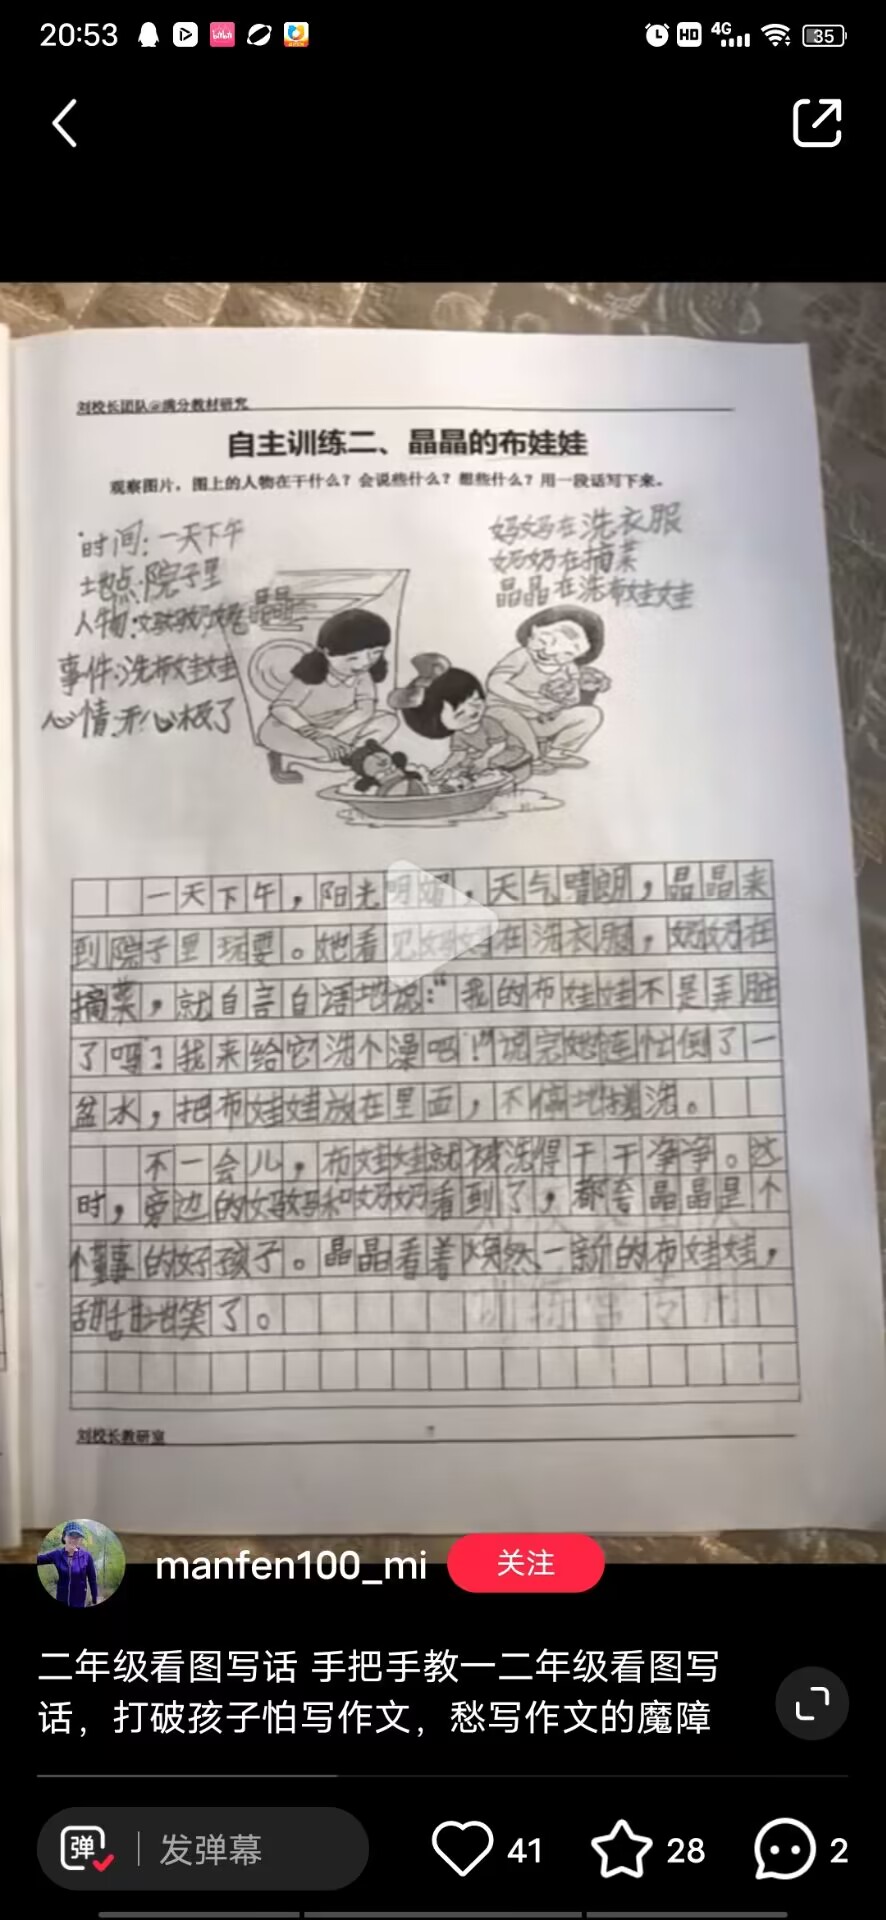 20:53
HD 4G 35
刘校长团队@满分教材研究
自主训练二、晶晶的布娃娃
观察图片，图上的人物在干什么？会说些什么？想些什么？用一段话写下来。
时间：一天下午
地点：院子里
人物：妈妈奶奶晶晶
事件：洗布娃娃
心情：开心极了
妈妈在洗衣服
奶奶在摘菜
晶晶在洗布娃娃
一天下午，阳光明媚，天气晴朗，晶晶来
到院子里玩耍。她看见妈妈在洗衣服，奶奶在
摘菜，就自言自语地说："我的布娃娃不是弄脏
了吗？我来给它洗个澡吧！"说完她连忙倒了一
盆水，把布娃娃放在里面，不停地搓洗。
不一会儿，布娃娃就被洗得干干净净。这
时，旁边的妈妈和奶奶看到了，都夸晶晶是个
懂事的好孩子。晶晶看着焕然一新的布娃娃，
甜甜地笑了。
刘校长教研室
manfen100_mi
关注
二年级看图写话 手把手教一二年级看图写
话，打破孩子怕写作文，愁写作文的魔障
弹
发弹幕
41
28
2